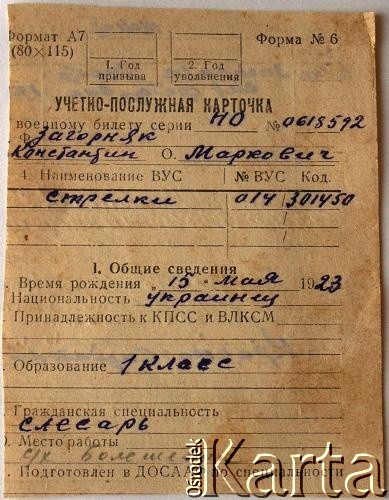 Формат А7
(80×115)
1. Год призыва
2. Год увольнения
Форма № 6
УЧЕТНО-ПОСЛУЖНАЯ КАРТОЧКА
военному билету серии НО № 0618592
Ф. Загорняк
Константин О. Маркович
4. Наименование ВУС № ВУС Код.
стрелки 014 301450
I. Общие сведения
Время рождения „15" мая 1923
Национальность украинец
Принадлежность к КПСС и ВЛКСМ
Образование 1 класс
Гражданская специальность
слесарь
Место работы
с/х
Подготовлен в ДОСААФ по специальности
Ośrodek Karta